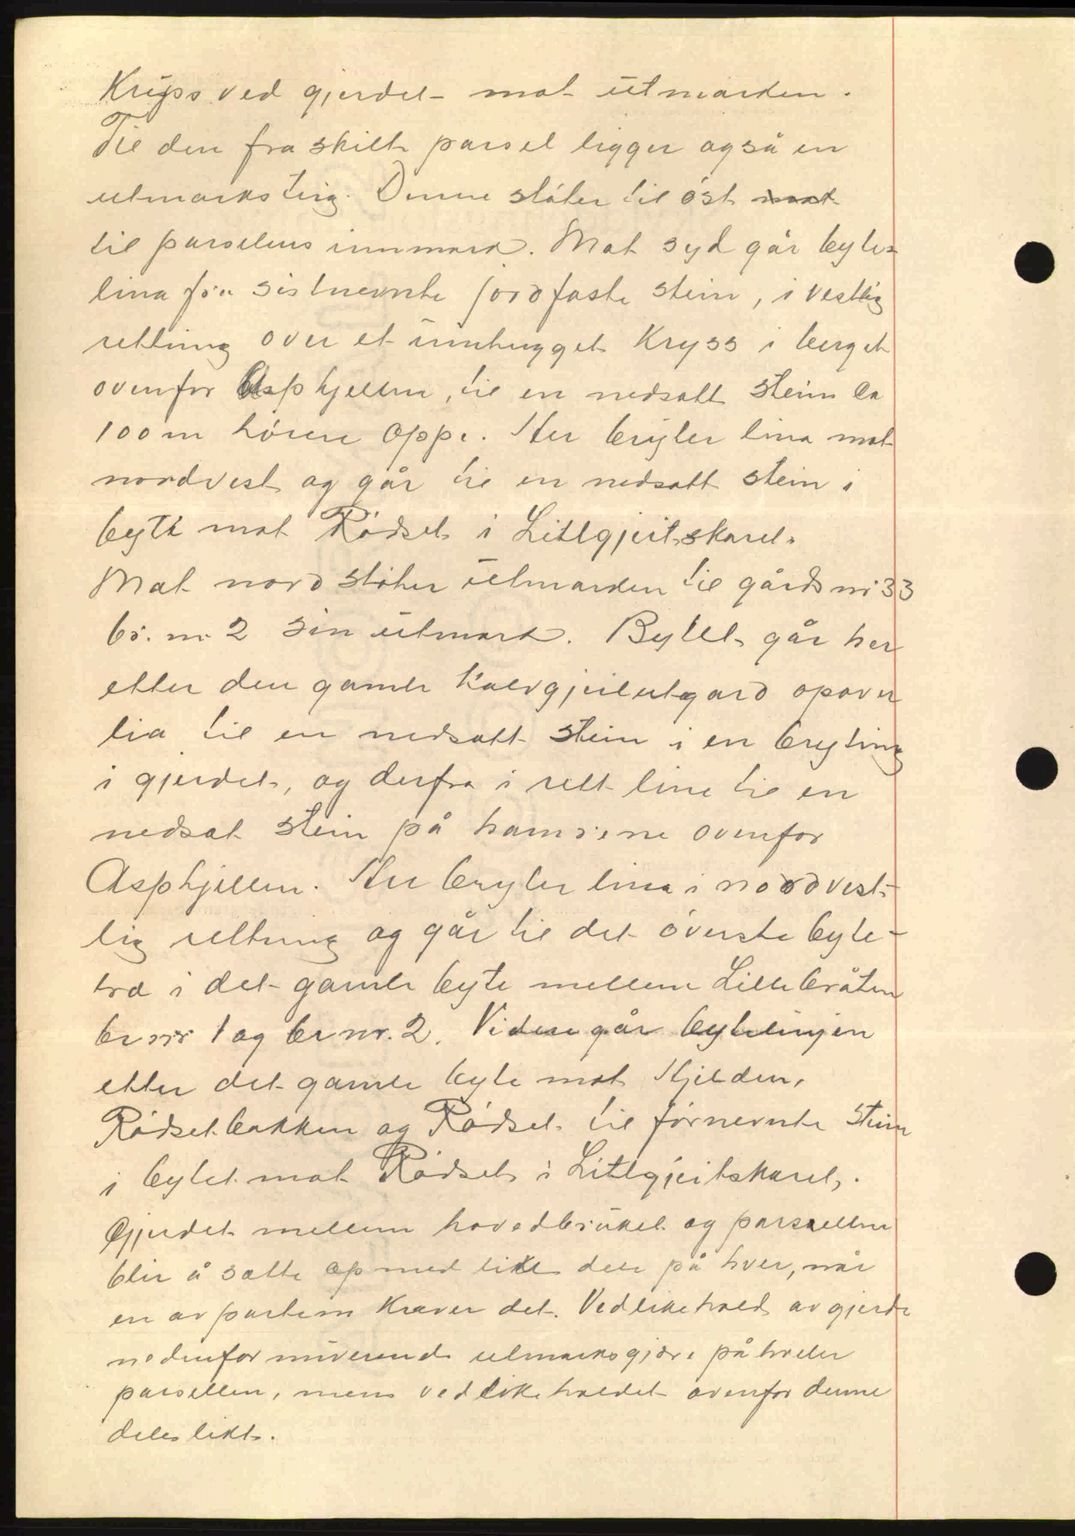 Kryss ved gjerdet mot utmarken.
Til den fraskilte parsel ligger også en
utmarksteig. Denne støter til øst mot
til parselens innmark. Mot syd går byte-
lina fra sistnevnte jordfaste stein, i vestlig
retning over et innhugget Kryss i berget
ovenfor Asphjellen, til en nedsatt stein ca
100 m høiere oppe. Her bryter lina mot
nordvest og går til en nedsatt stein i
byte mot Rødset i Litlgjeitskaret.
Mot nord støter utmarken til gårds nr 33
br. nr 2 sin utmark. Bytet går her
etter den gamle gard opover
lia til en nedsatt stein i en bryting
i gjerdet, og derfra i rett line til en
nedsat stein på hamrene ovenfor
Asphjellen. Her bryter lina i nordvest-
lig retning og går til det øverste byte-
tre i det gamle byte mellem Lillebråten
br nr 1 og br nr. 2. Videre går bytelinjen
etter det gamle byte mot Kjelden,
Rødsetbakken og Rødset til førnevnte stein
i bytet mot Rødset i Litlgjeitskaret.
Gjerdet mellem hovedbruket og parsellen
blir å sette op med like dele på hver, når
en av partene Krever det. Vedlikehold av gjerde
nedenfor nuverende utmarksgjære påhviler
parsellen, mens vedlikeholdet ovenfor denne
deles likt.